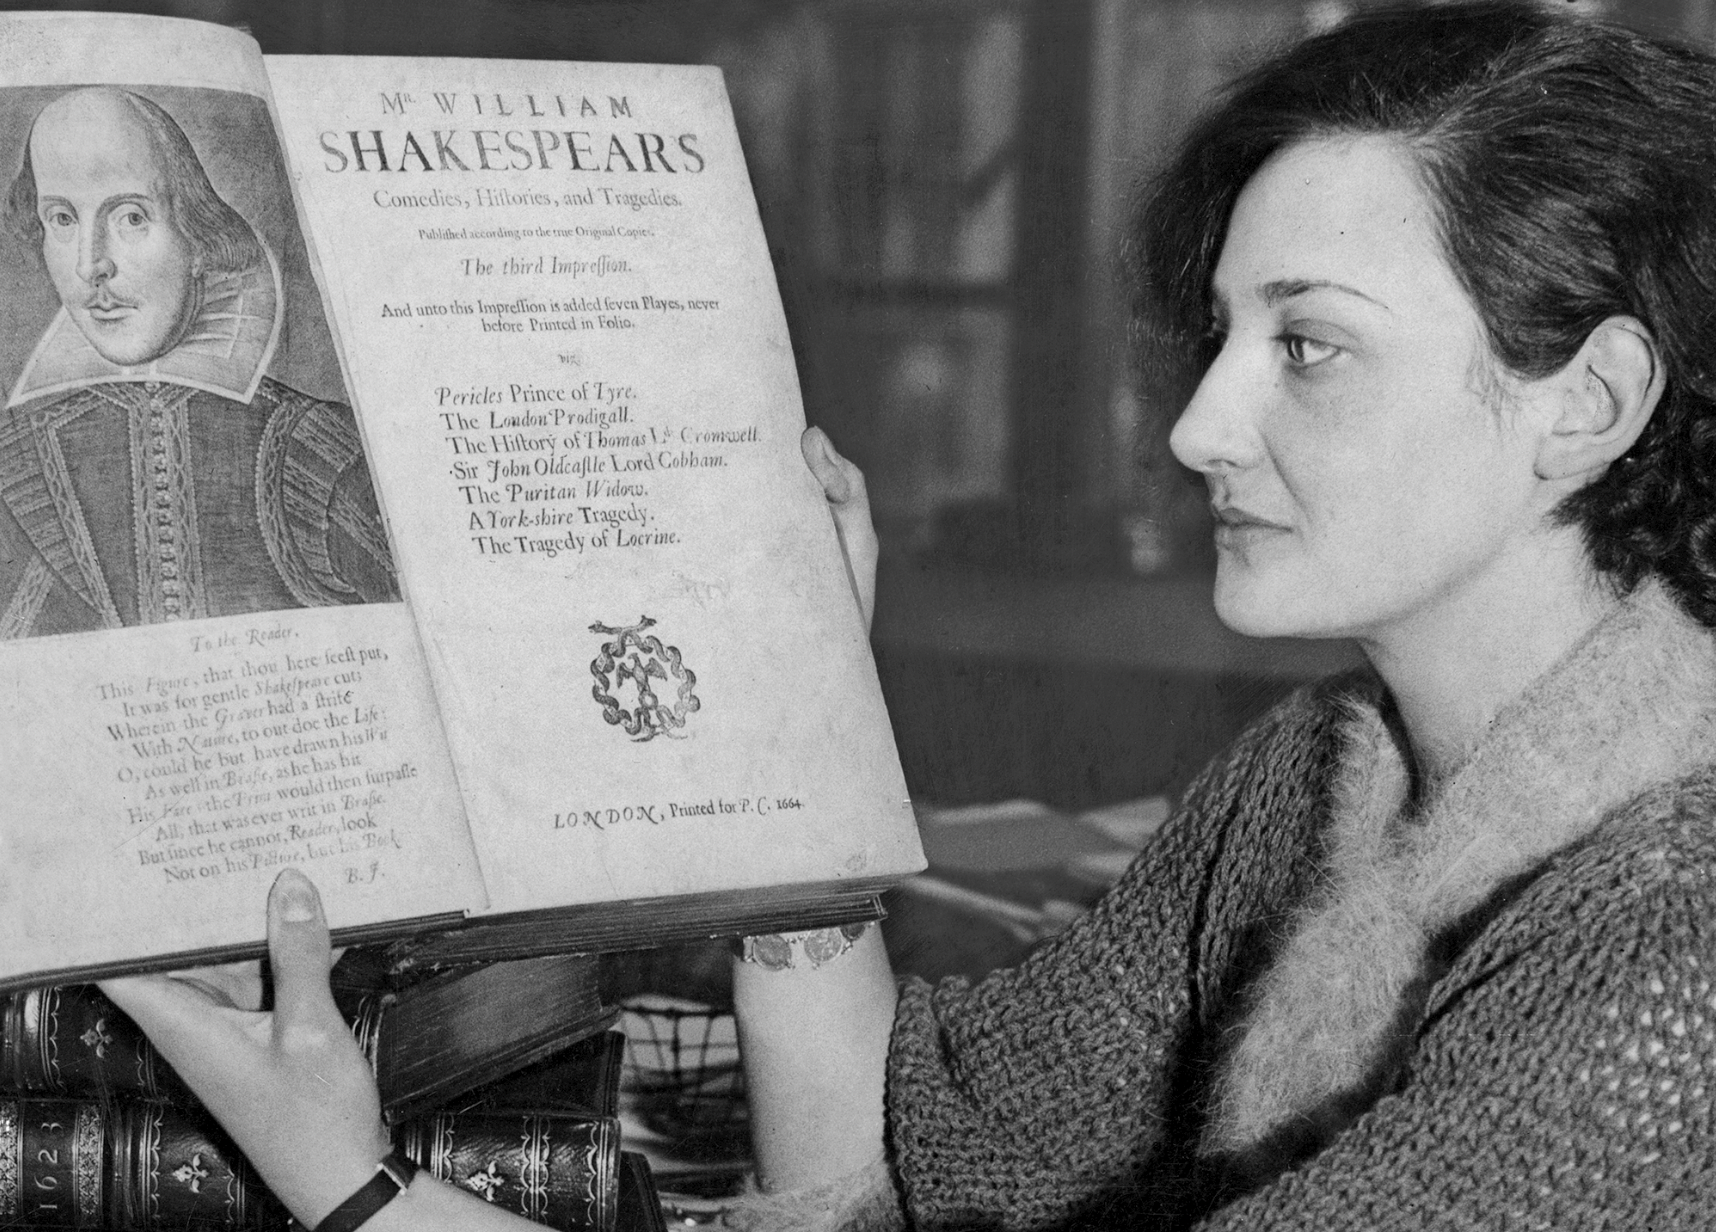 To the Reader.
This Figure, that thou here seeſt put,
It was for gentle Shakeſpeare cut:
Wherein the Graver had a ſtrife
With Nature, to out-doe the Life:
O, could he but have drawn his Wit
As well in Braſſe, as he has hit
His Face; the Print would then ſurpaſſe
All, that was ever writ in Braſſe.
But ſince he cannot, Reader, look
Not on his Picture, but his Book
B. J.
Mr. WILLIAM
SHAKESPEARS
Comedies, Hiſtories, and Tragedies.
Publiſhed according to the true Original Copies.
The third Impreſſion.
And unto this Impreſſion is added ſeven Playes, never
before Printed in Folio.
viz.
Pericles Prince of Tyre.
The London Prodigall.
The Hiſtory of Thomas Ld. Cromwell.
Sir John Oldcaſtle Lord Cobham.
The Puritan Widow.
A York-shire Tragedy.
The Tragedy of Locrine.
LONDON, Printed for P. C. 1664.
1623